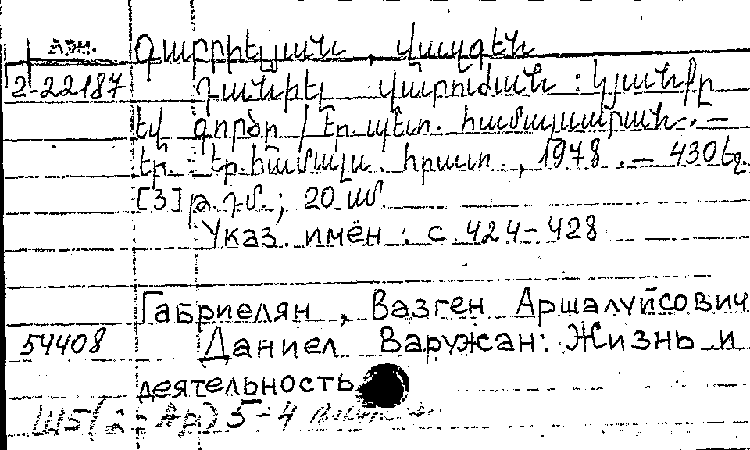 Арм.
Գաբրիելյան, Վազգեն
2-22187 Դանիել Վարուժան: Կյանքը
եվ գործը / Եր. պետ. համալսարան. —
Եր.: Եր. համալս. հրատ., 1978. — 430 էջ.
[3] թ. դ.մ.; 20 սմ
Указ. имён: с. 424-428
Габриелян, Вазген Аршалуйсович
54408 Даниел Варужан: Жизнь и
деятельность.
Ш5(2=Ар)5-4